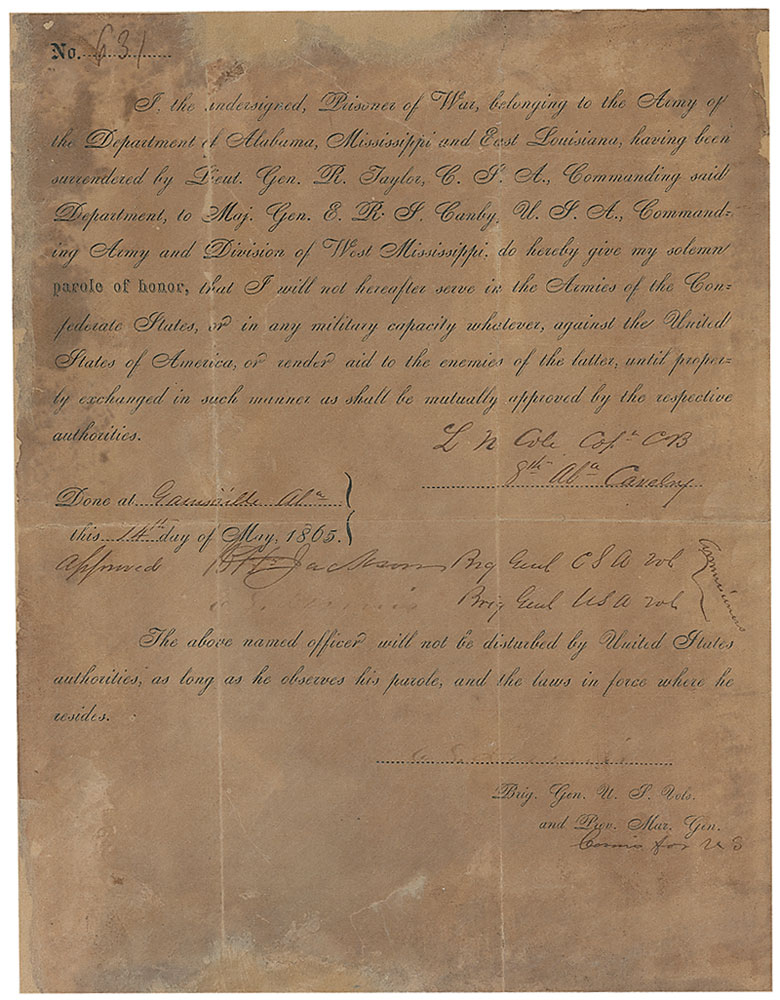 No. 631
I, the undersigned, Prisoner of War, belonging to the Army of
the Department of Alabama, Mississippi and East Louisiana, having been
surrendered by Lieut. Gen. R. Taylor, C. S. A., Commanding said
Department, to Maj. Gen. E. R. S. Canby, U. S. A., Command-
ing Army and Division of West Mississippi, do hereby give my solemn
parole of honor, that I will not hereafter serve in the Armies of the Con-
federate States, or in any military capacity whatever, against the United
States of America, or render aid to the enemies of the latter, until proper-
ly exchanged in such manner as shall be mutually approved by the respective
authorities.
L N Cole Capn C B
8th Aba Cavelry
Done at Gainsville Aba
this 14th day of May, 1865.
Approved Jackson Brig Genl C S A
Brig Genl U S A
Commissioners
The above named officer will not be disturbed by United States
authorities, as long as he observes his parole, and the laws in force where he
resides.
Brig. Gen. U. S. Vols.
and Prov. Mar. Gen.
for U S